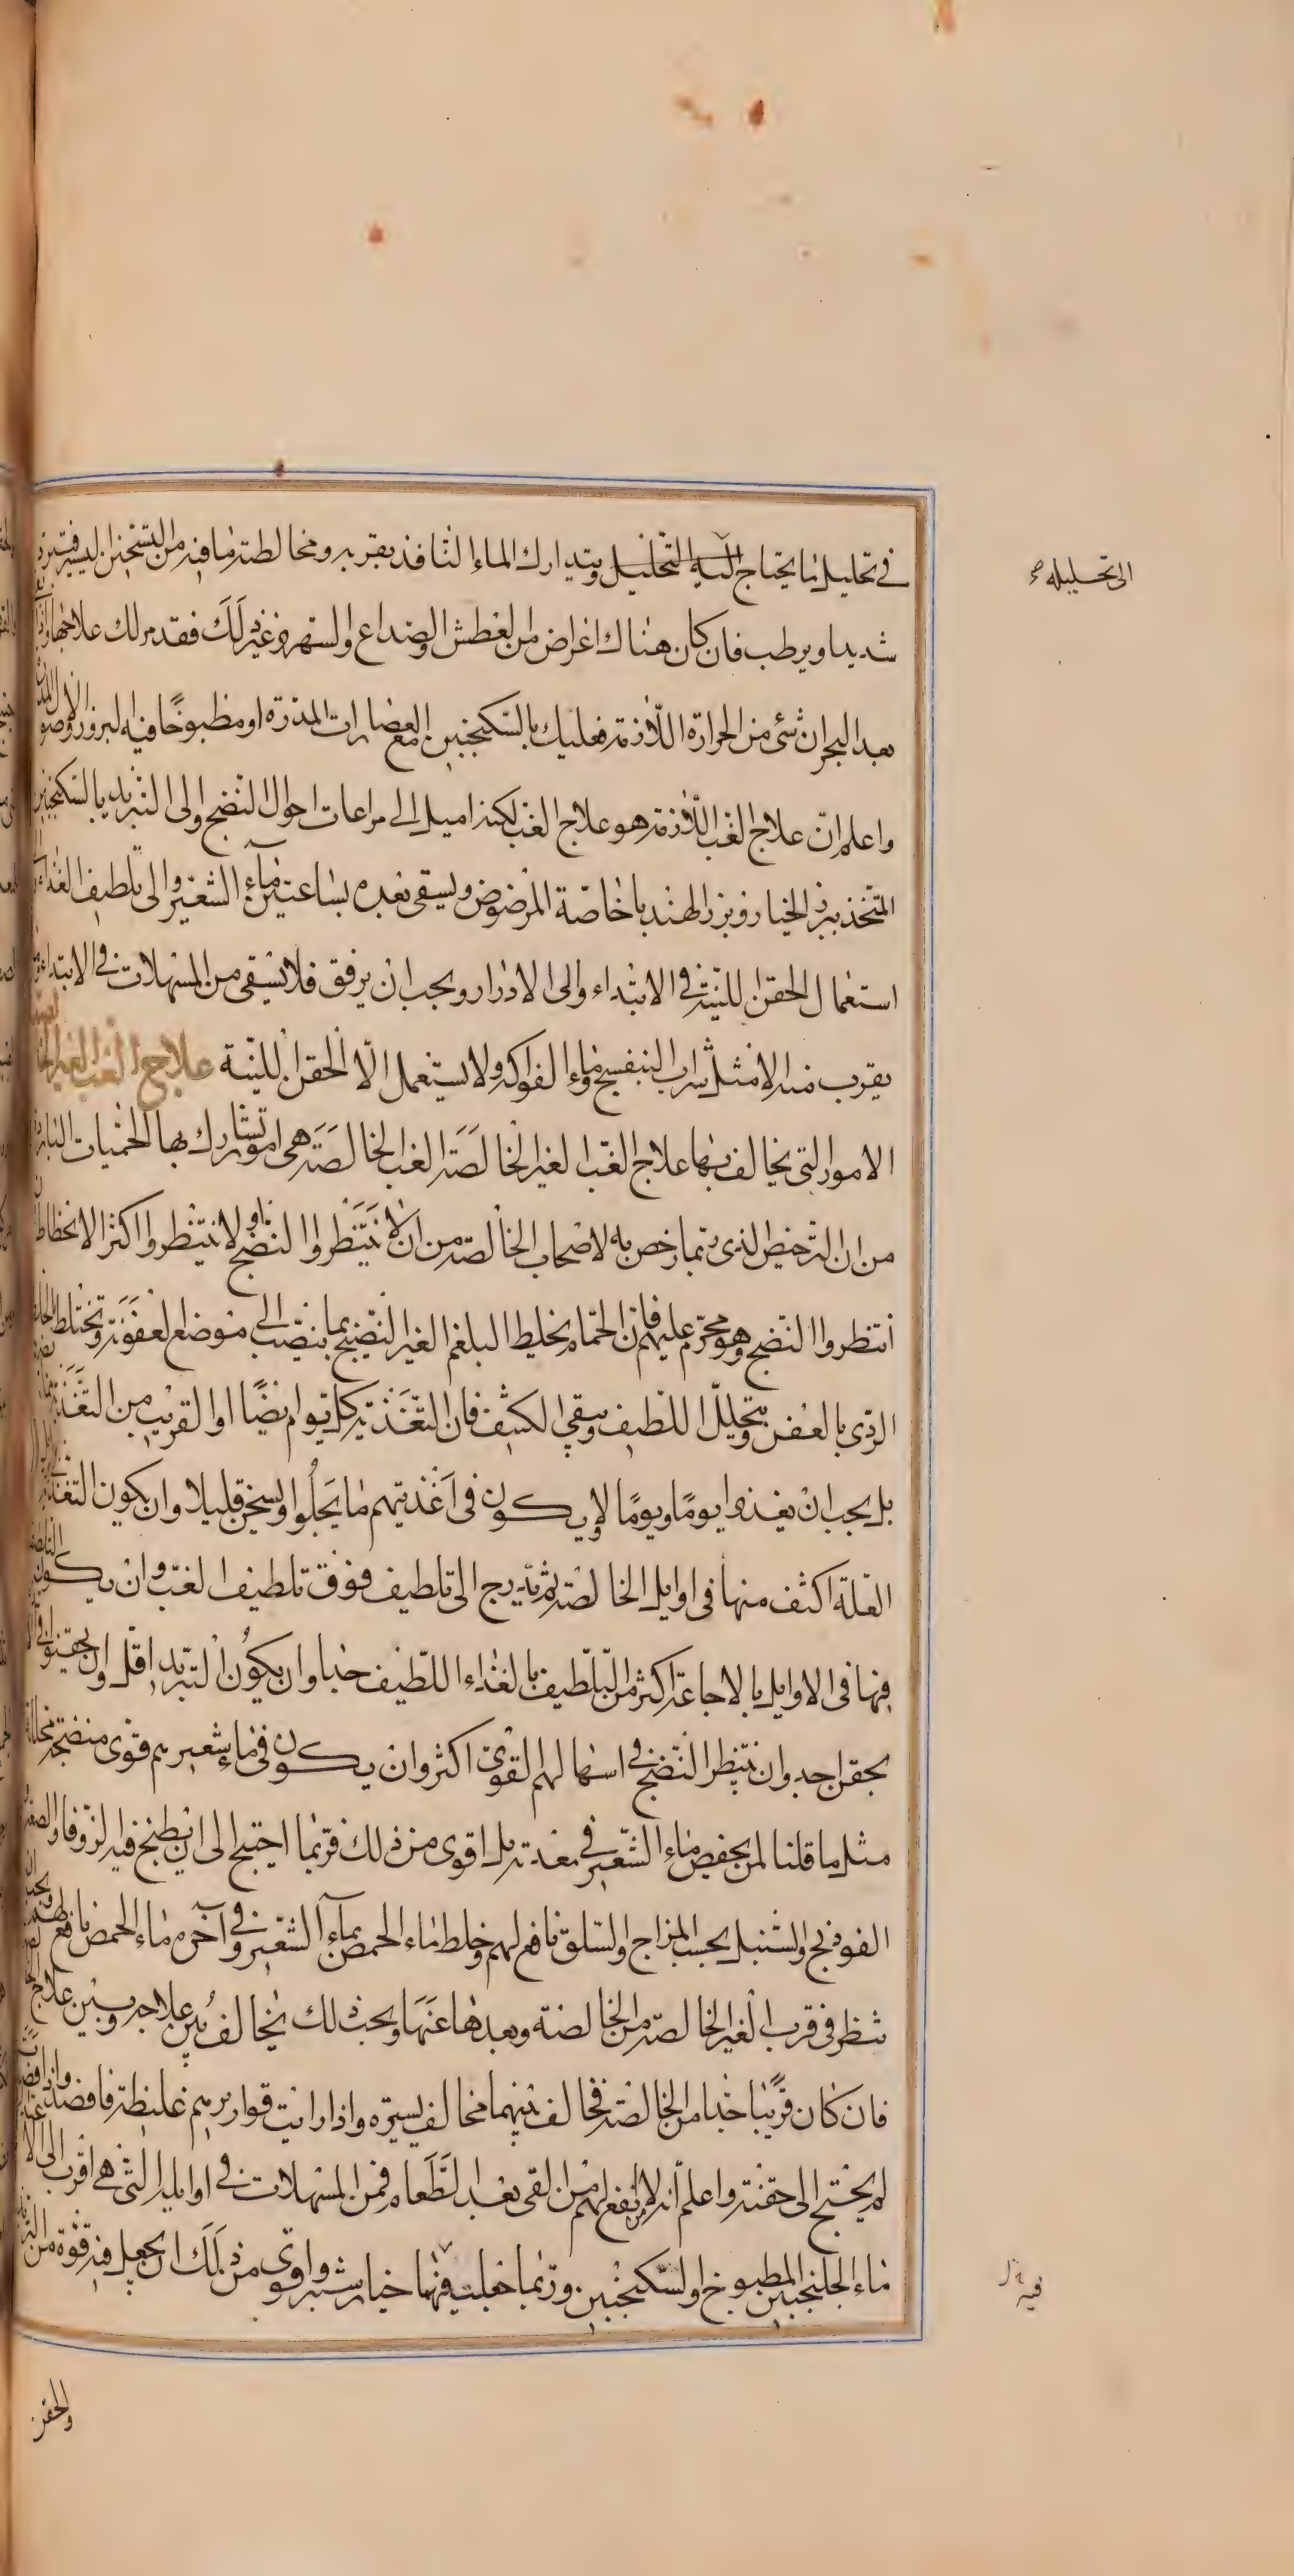 في تحليل ما يحتاج اليه التحليل ويتدارك الماء النافذ بقربه ومخالطته ما فيه من التسخين اليسير فيبرد
الى تحليله صح
شديدا ويرطب فان كان هناك اعراض من العطش والصداع والسهر وغير ذلك فقد مر لك علاجها
بعد البحران شئ من الحرارة اللازمة فعليك بالسكنجبين مع العصارات المدرة او مطبوخا فيه البزور والاصول
واعلم ان علاج الغب اللازمة هو علاج الغب لكنه اميل الى مراعات احوال النضج والى التبريد بالسكنجبين
المتخذ ببزر الخيار وبزر الهندبا خاصة المرضوض ويسقى بعده بساعتين ماء الشعير والى تلطيف الغذاء
استعمال الحقن اللينة في الابتداء والى الادرار ويجب ان يرفق فلا يسقى من المسهلات في الابتداء
يقرب منه الا مثل شراب البنفسج وماء الفواكه ولا يستعمل الا الحقن اللينة علاج الغب الغير الخالصة
الامور التي يخالف بها علاج الغب الغير الخالصة الغب الخالصة هي امور تشارك بها الحميات الباردة
من ان الترخيص الذي ربما رخص به لاصحاب الخالصة من ان لا ينتظروا النضج او لا ينتظروا اكثر الانحطاط
انتظروا النضج وهو محرم عليهم فان الحمام يخلط البلغم الغير النضيج بما ينصب الى موضع العفونة وتختلط
الردي بالعفن ويتحلل اللطيف ويبقى الكثيف فان التغذية كل يوم ايضا او القريب من التغذية
بل يجب ان يغذوا يوما ويوما لا ويكون في اغذيتهم ما يجلوا ويسخن قليلا وان يكون التغذية
العلة اكثف منها في اوايل الخالصة ثم يدرج الى تلطيف فوق تلطيف الغب وان يكون
فيها في الاوايل بالاجاعة اكثر من التلطيف بالغذاء اللطيف جدا وان يكون التبريد اقل وان يحقنوا في
بحقن احد وان ينتظر النضج في اسهالهم القوي اكثر وان يكون في ماء شعيرهم قوى منضجة محللة
مثل ما قلنا لمن يحمض ماء الشعير في معدته بل اقوى من ذلك فربما احتيج الى ان يطبخ فيه الزوفا والصعتر
الفودنج والسنبل بحسب المزاج والسلق نافع لهم وخلط ماء الحمص بماء الشعير وفي آخره ماء الحمص نافع لهم
تنظر في قرب الغير الخالصة من الخالصة وبعدها عنها وبحسب ذلك يخالف بين علاجه وبين علاج
فان كان قريبا جدا من الخالصة فخالف بينهما مخالف يسيرة واذا رايت قواريرهم غليظة فافصد
لم يحتج الى حقنة واعلم انه لا انفع لهم من القي بعد الطعام فمن المسهلات في اوايله التي هي اقرب الى
ماء الجلنجبين المطبوخ او السكنجبين وربما جعلت فيهما خيار شنبر واقوى من ذلك ان يجعل فيه قوة من
فيه
والحقن